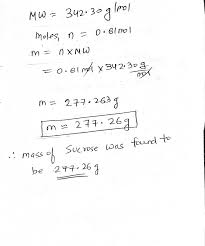 MW = 342.30 g/mol
moles, n = 0.81mol
m = n×MW
= 0.81 mol × 342.30 g/mol
m = 277.263 g
m = 277.26 g
∴ mass of Sucrose was found to
be 277.26 g